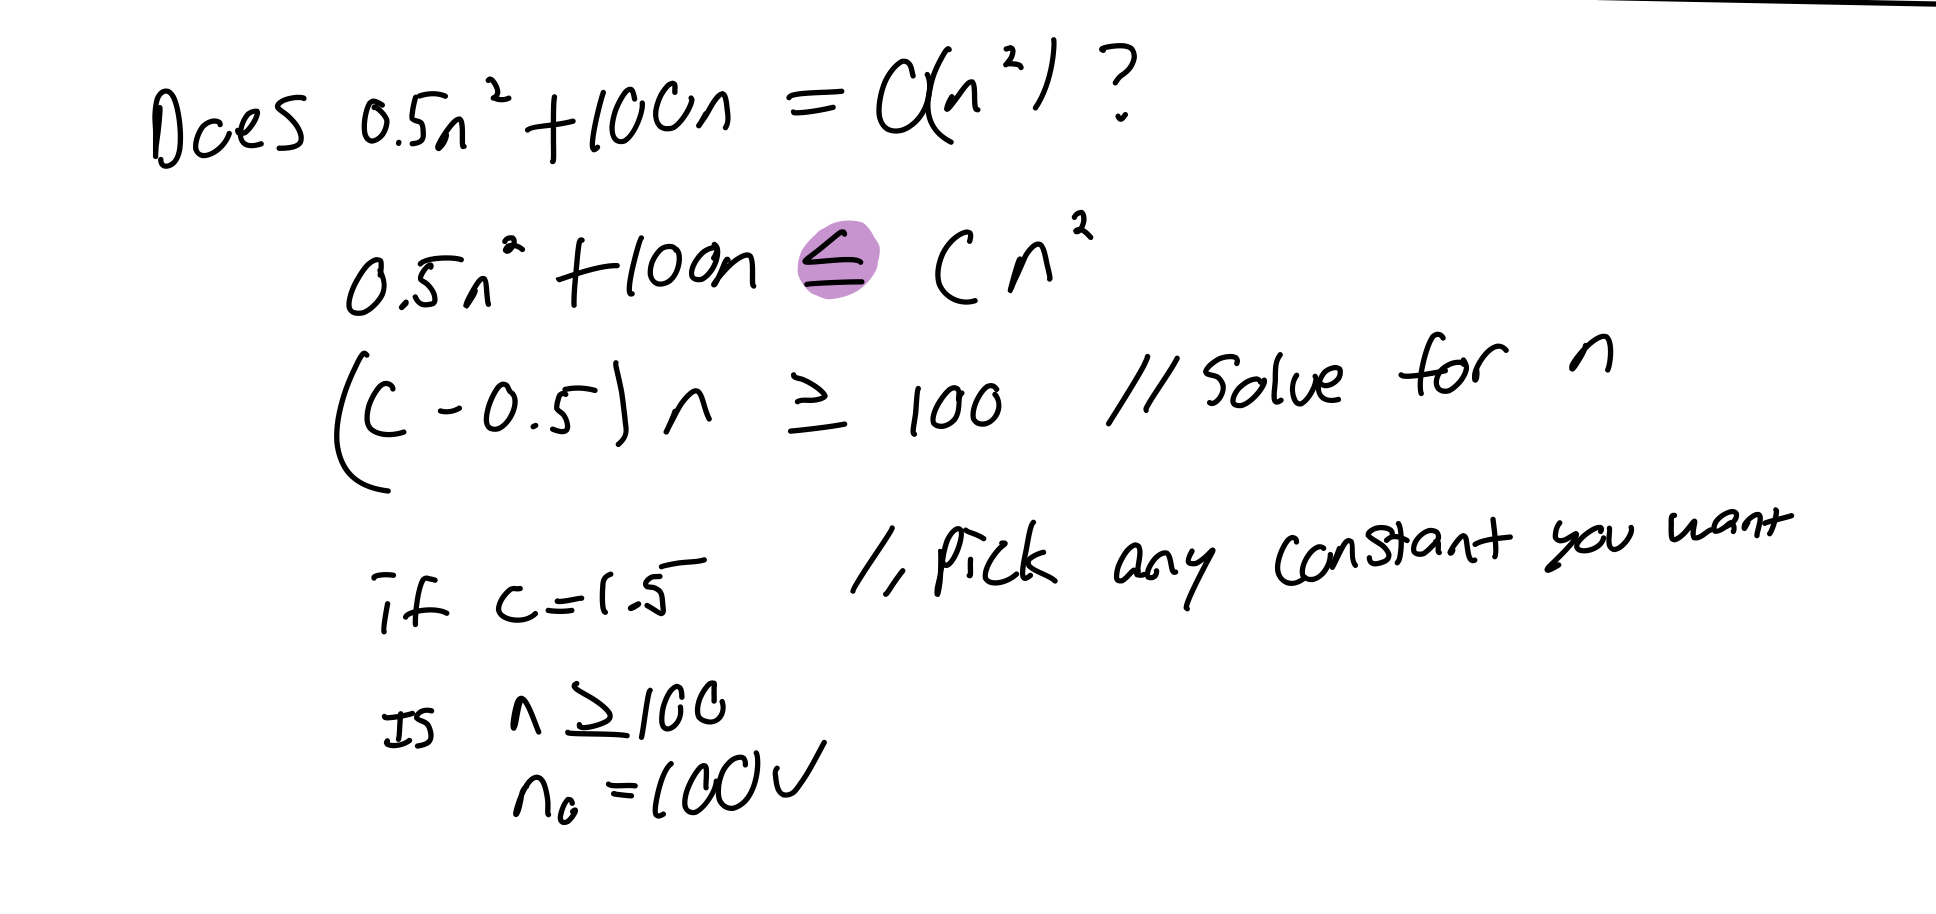 Does 0.5n² + 100n = O(n²) ?
0.5n² + 100n ≤ Cn²
(C - 0.5) n ≥ 100 // Solve for n
if c = 1.5 // Pick any constant you want
Is n ≥ 100
n₀ = 100 ✓